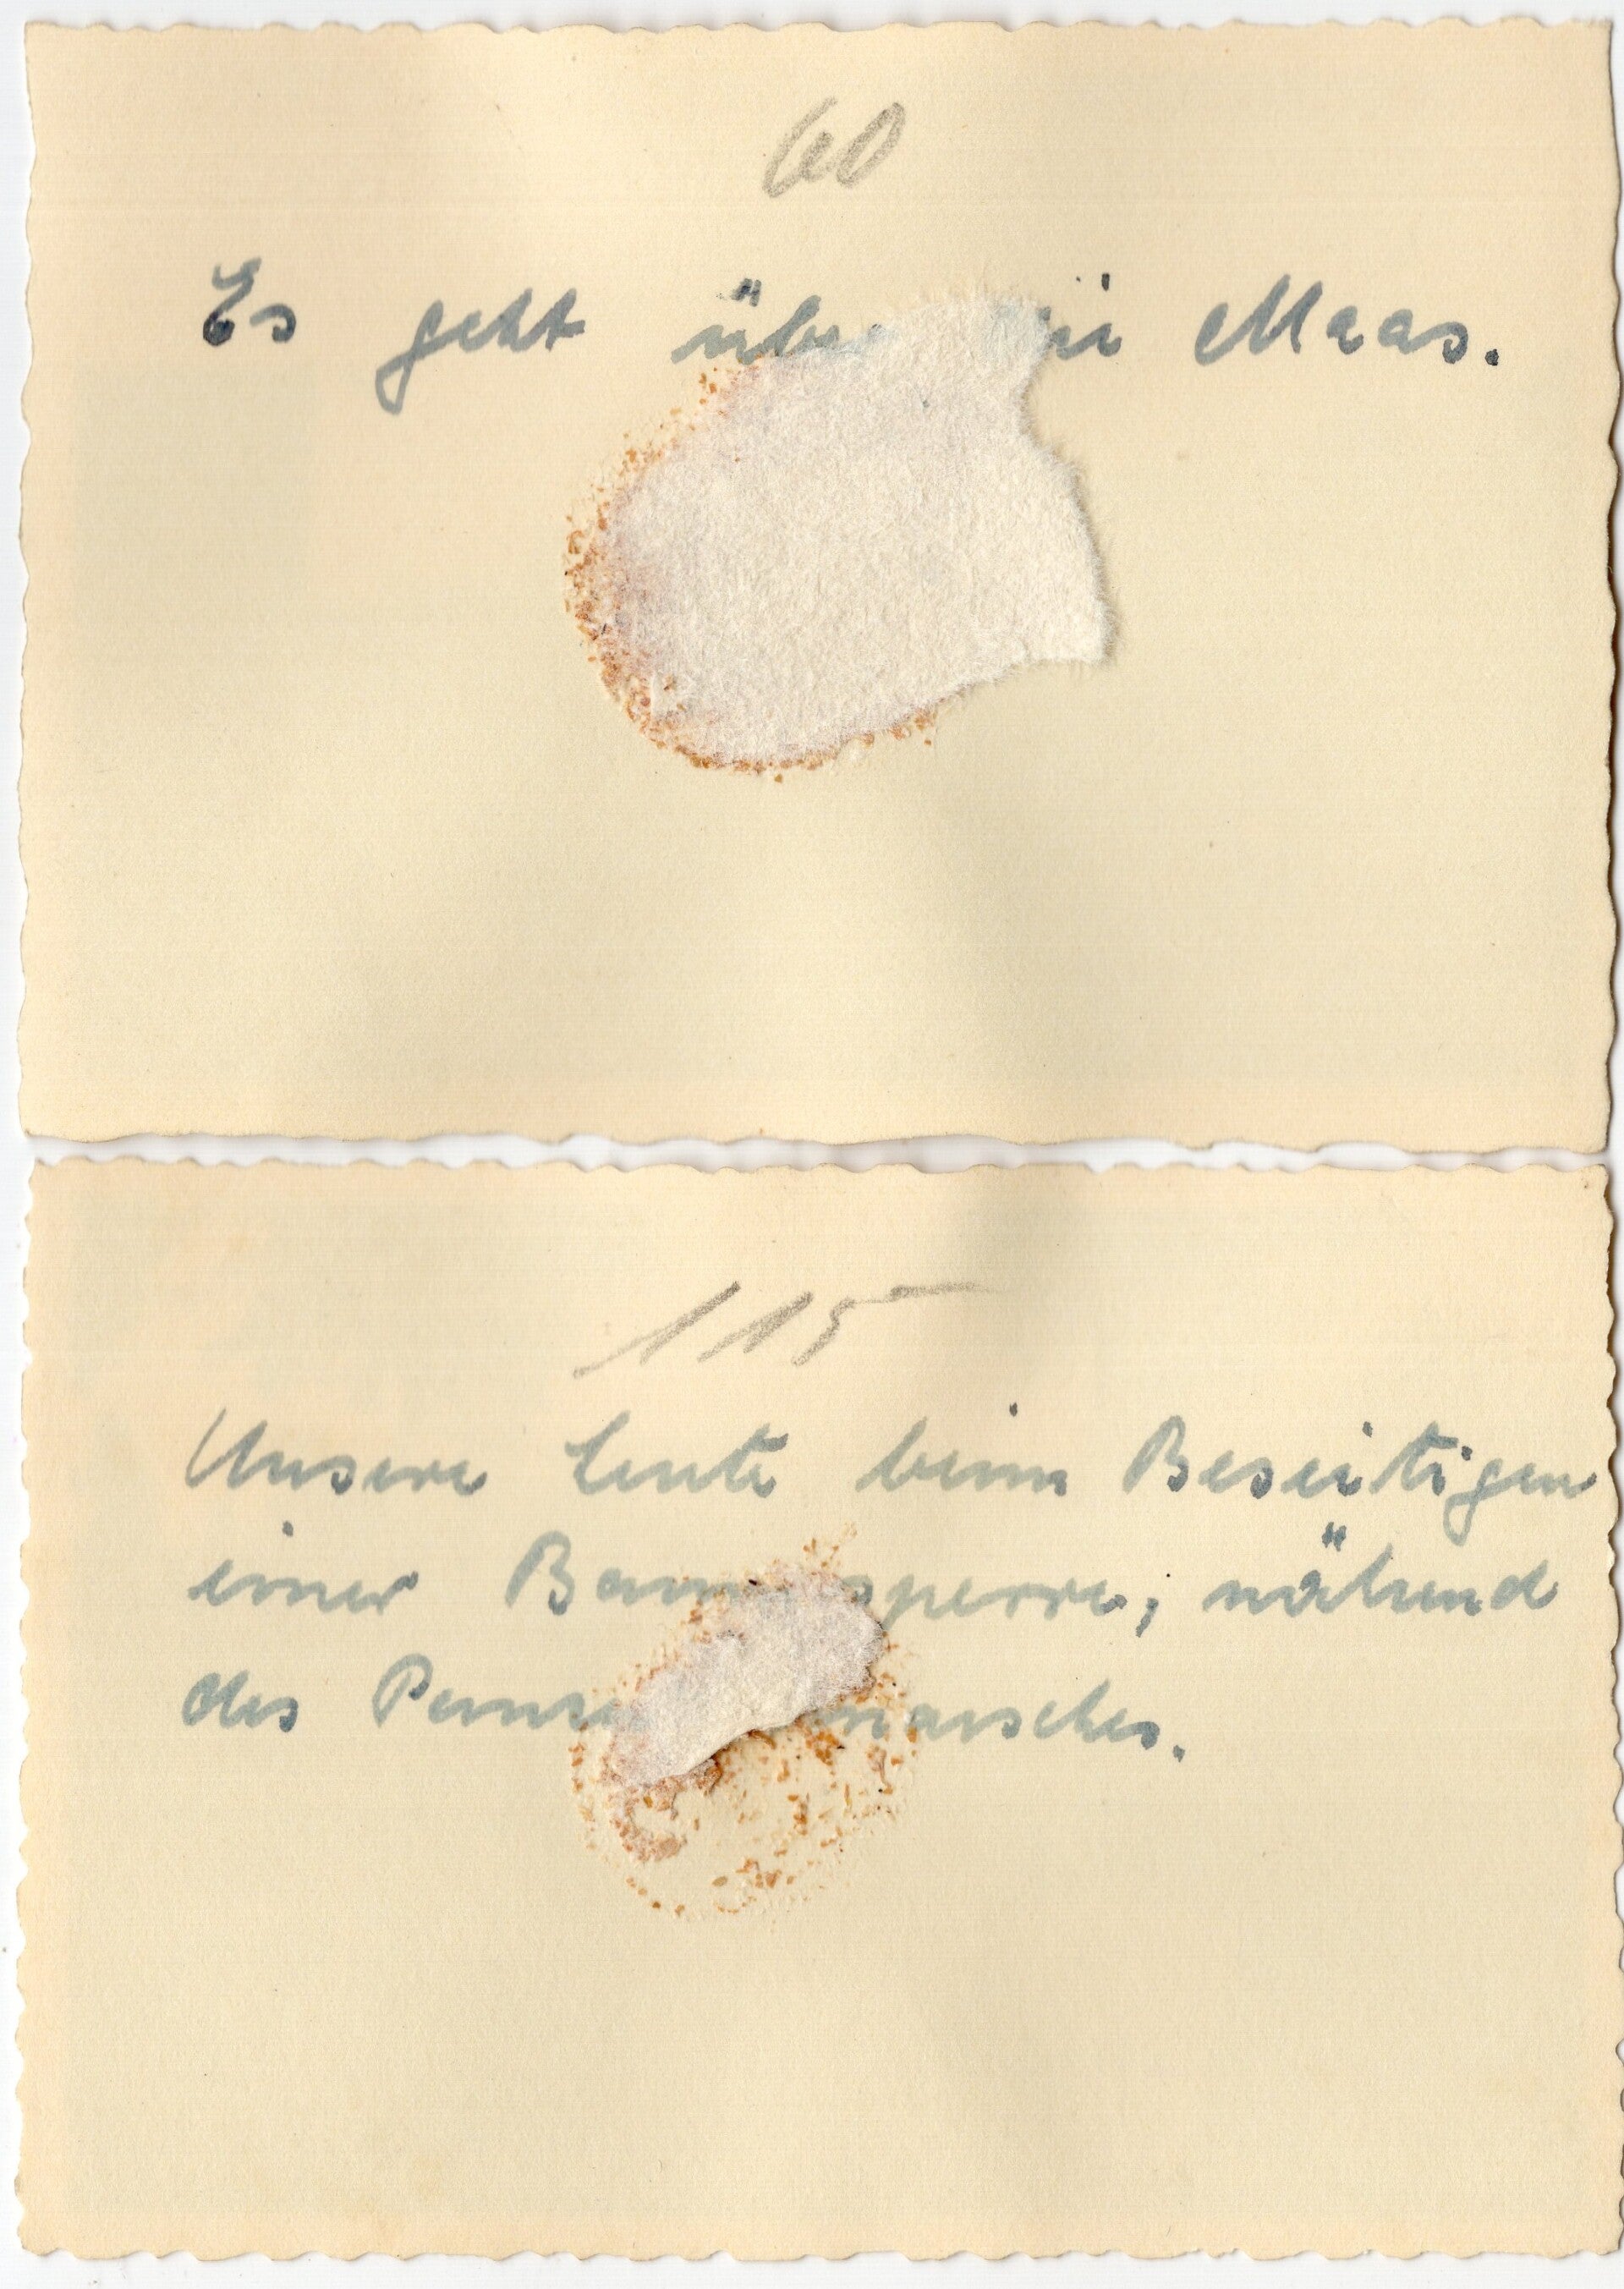 60
Es geht über die Maas.
115
Unsere Leute beim Beseitigen
einer Baumsperre, während
des marsches.